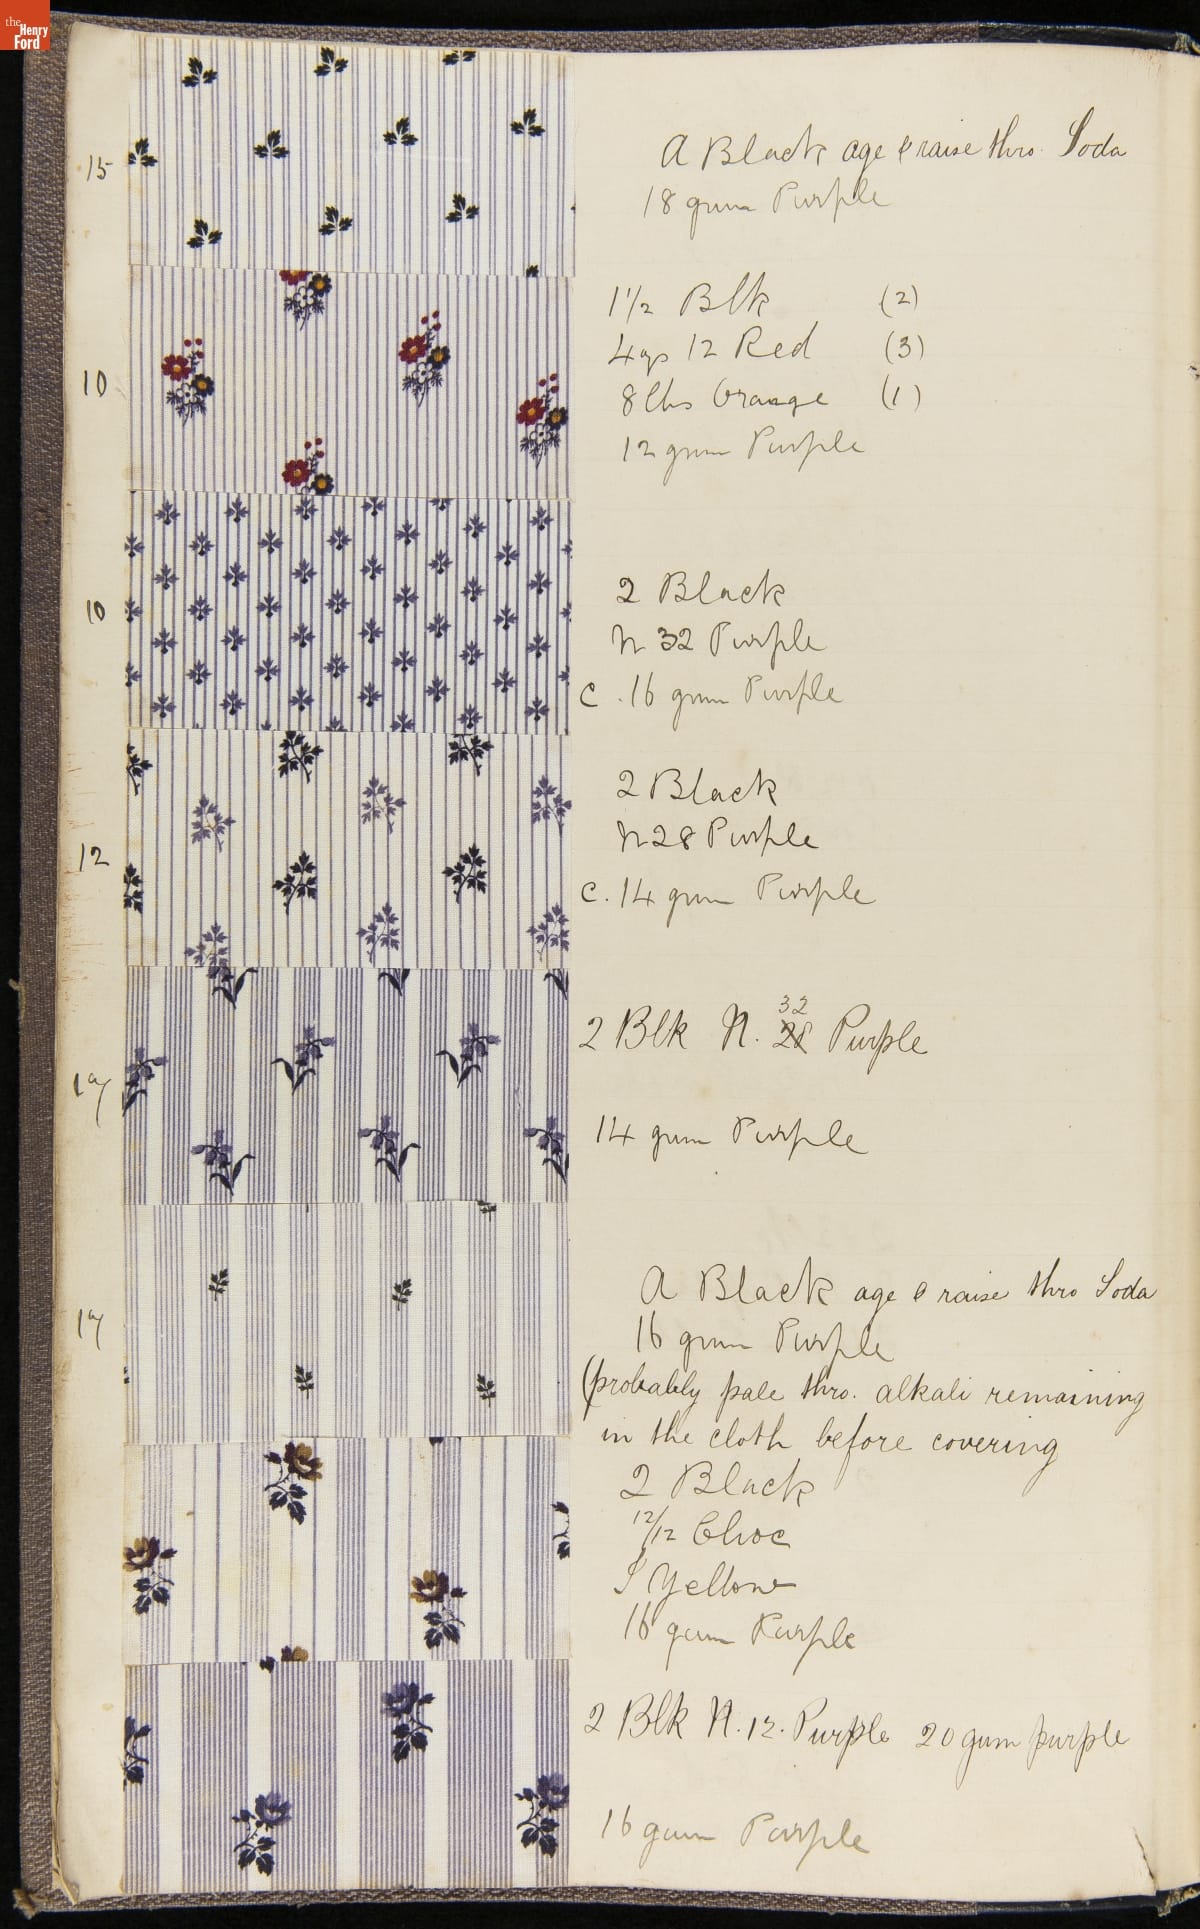 the
Henry
Ford
15
A Black age & raise thro. Soda
18 gum Purple
10
1 1/2 Blk (2)
4 gs 12 Red (3)
8 lbs Orange (1)
12 gum Purple
10
2 Black
N 32 Purple
C. 16 gum Purple
12
2 Black
N 28 Purple
C. 14 gum Purple
32
2 Blk N. 28 Purple
14 gum Purple
A Black age & raise thro Soda
16 gum Purple
(probably pale thro. alkali remaining
in the cloth before covering
2 Black
12/12 Choc
Yellow
16 gum Purple
2 Blk N. 12. Purple 20 gum purple
16 gum Purple